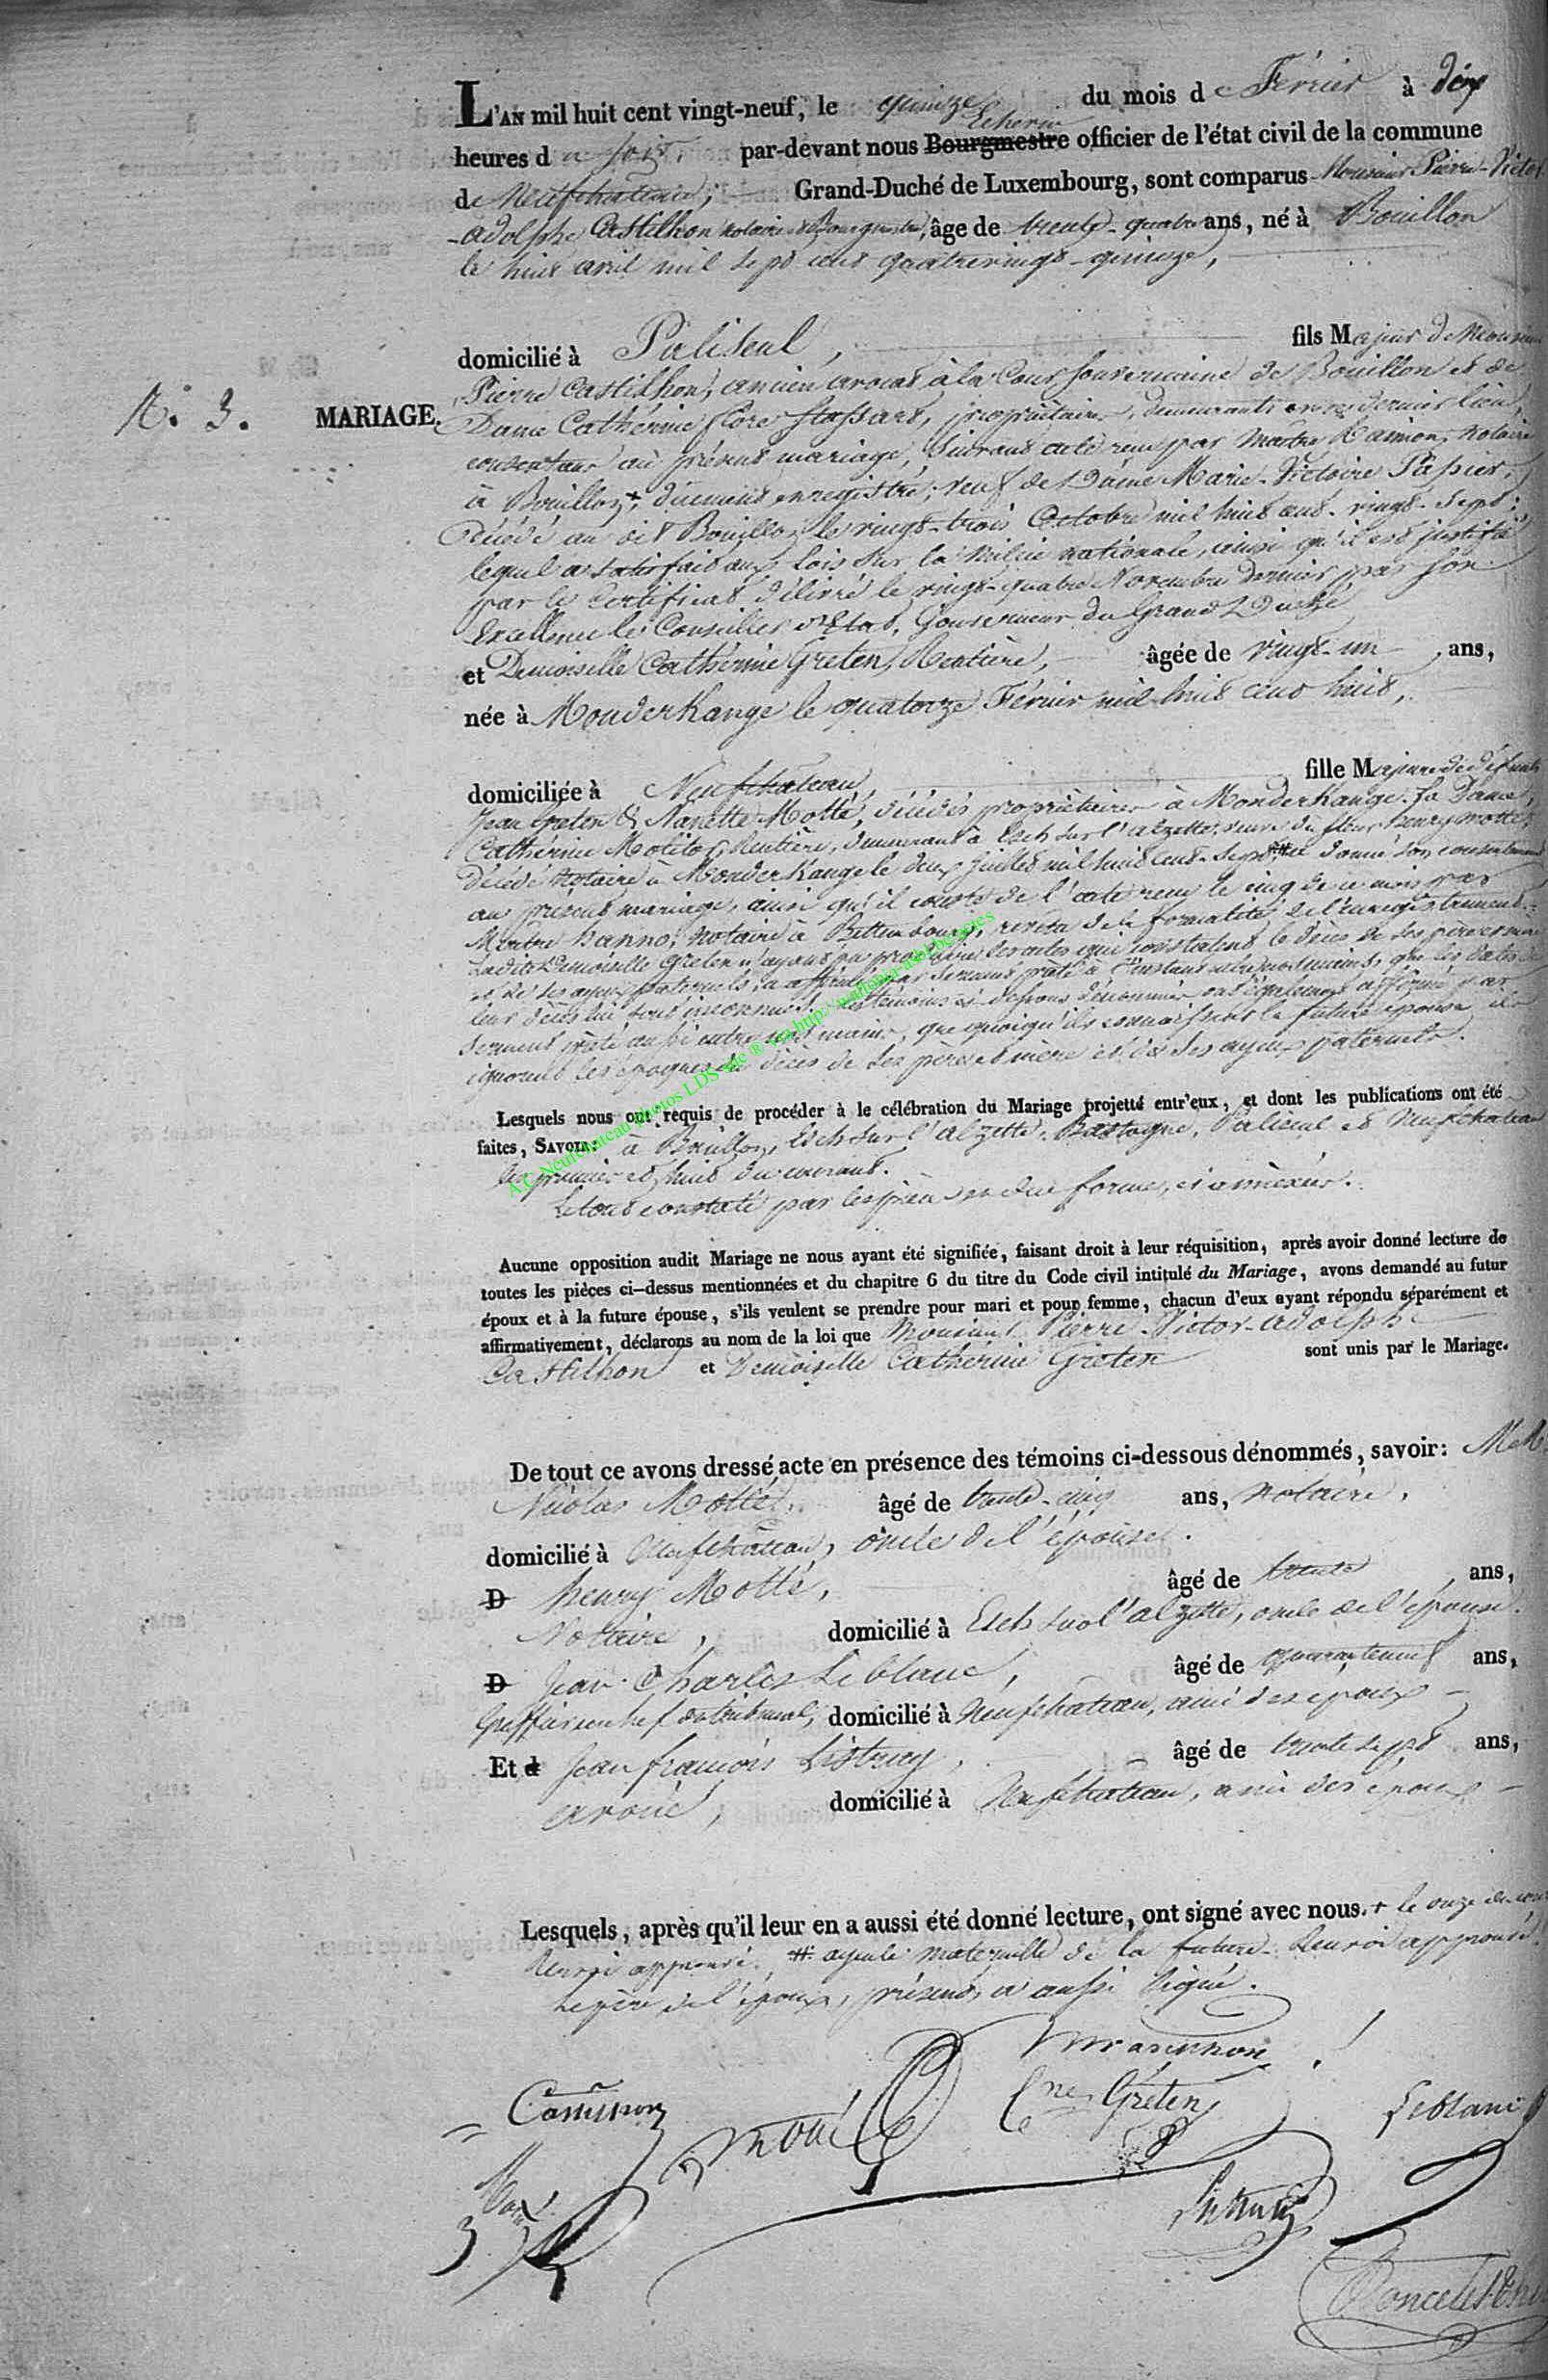 L'AN mil huit cent vingt-neuf, le quinze du mois de Février à dix
heures du soir, par-devant nous Bourgmestre Echevin officier de l'état civil de la commune
de Neufchateau, Grand-Duché de Luxembourg, sont comparus Monsieur Pierre-Victor
-Adolphe Castilhon notaire & Bourgmestre, âge de trente-quatre ans, né à Bouillon
le huit avril mil sept cent quatrevingt-quinze,
domicilié à Paliseul, fils Majeur de Monsieur
N.° 3. MARIAGE.
Pierre Castilhon, ancien avocat à la Cour souveraine de Bouillon et de
Dame Cathérine Flore Stassart, propriétaires, demeurants en ce dernier lieu,
consentant au présent mariage, suivant acte reçu par Maître Hamion, notaire
à Bouillon +, duement enregistré; veuf de Dame Marie-Victoire
décédé au dit Bouillon le vingt-trois Octobre mil huit cent-vingt-sept;
lequel a satisfait aux lois sur la milice nationale, ainsi qu'il est justifié
par le Certificat délivré le vingt-quatre Novembre dernier par Son
Excellence le Conseiller d'Etat, Gouverneur du Grand Duché
et Demoiselle Cathérine Greten, Rentière, âgée de vingt-un ans,
née à Monderkange le quatorze Février mil-huit cent huit,
domiciliée à Neufchateau, fille Majeure de défunts
Jean Greten & Nanette Motté, décédés propriétaires à Monderkange. La Dame
Cathérine Molitor, Rentière, demeurant à Esch sur l'alzette, veuve du sieur henry motté,
décédé notaire à Monderkange le deux juillet mil huit cent-sept # a donné son consentement
au présent mariage, ainsi qu'il conste de l'acte reçu le cinq de ce mois par
Maître hanno, notaire à Bettembourg, revêtu de la formalité de l'enregistrement.
Ladite Demoiselle Greten n'ayant pu produire les actes qui constatent le décès de ses père et mère
et de ses ayeux paternels, a affirmé par serment prêté à l'instant entre nos mains, que les dates de
leur décès lui sont inconnues. Les témoins ci-dessous dénommés ont également affirmé par
serment prêté aussi entre nos mains, que quoiqu'ils connaissent la future épouse, ils
ignorent les époques du décès de ses père et mère et de ses ayeux paternels.
A.C. Neufchateau Photos LDS site ® via http://wallonia-asbl.be/actes
Lesquels nous ont requis de procéder à le célébration du Mariage projetté entr'eux, et dont les publications ont été
faites, SAVOIR: à Bouillon, Esch sur l'alzette, Bastogne, Paliseul et Neufchateau
les premier et huit du courant.
Le tout constaté par les pièces en due forme, ci annéxées.
Aucune opposition audit Mariage ne nous ayant été signifiée, faisant droit à leur réquisition, après avoir donné lecture de
toutes les pièces ci-dessus mentionnées et du chapitre 6 du titre du Code civil intitulé du Mariage, avons demandé au futur
époux et à la future épouse, s'ils veulent se prendre pour mari et pour femme, chacun d'eux ayant répondu séparément et
affirmativement, déclarons au nom de la loi que Monsieur Pierre-Victor-Adolphe
Castilhon et Demoiselle Cathérine Greten sont unis par le Mariage.
De tout ce avons dressé acte en présence des témoins ci-dessous dénommés, savoir: M.
Nicolas Motté, âgé de trente-cinq ans, notaire,
domicilié à Neufchateau, oncle de l'épouse.
D henry Motté, âgé de trente ans,
Notaire, domicilié à Esch sur l'alzette, oncle de l'épouse.
D Jean Charles Leblanc, âgé de quarante neuf ans,
Greffier en chef du tribunal, domicilié à Neufchateau, ami des époux
Et d Jean françois Listray, âgé de trente sept ans,
avoué, domicilié à Neufchateau, ami des époux
Lesquels, après qu'il leur en a aussi été donné lecture, ont signé avec nous. + le onze du courant
Renvoi approuvé. # ayeule maternelle de la future. Renvoi approuvé.
Le père de l'époux, présent, a aussi signé.
Castilhon
Motté
Cne Greten
Leblanc
Poncelet